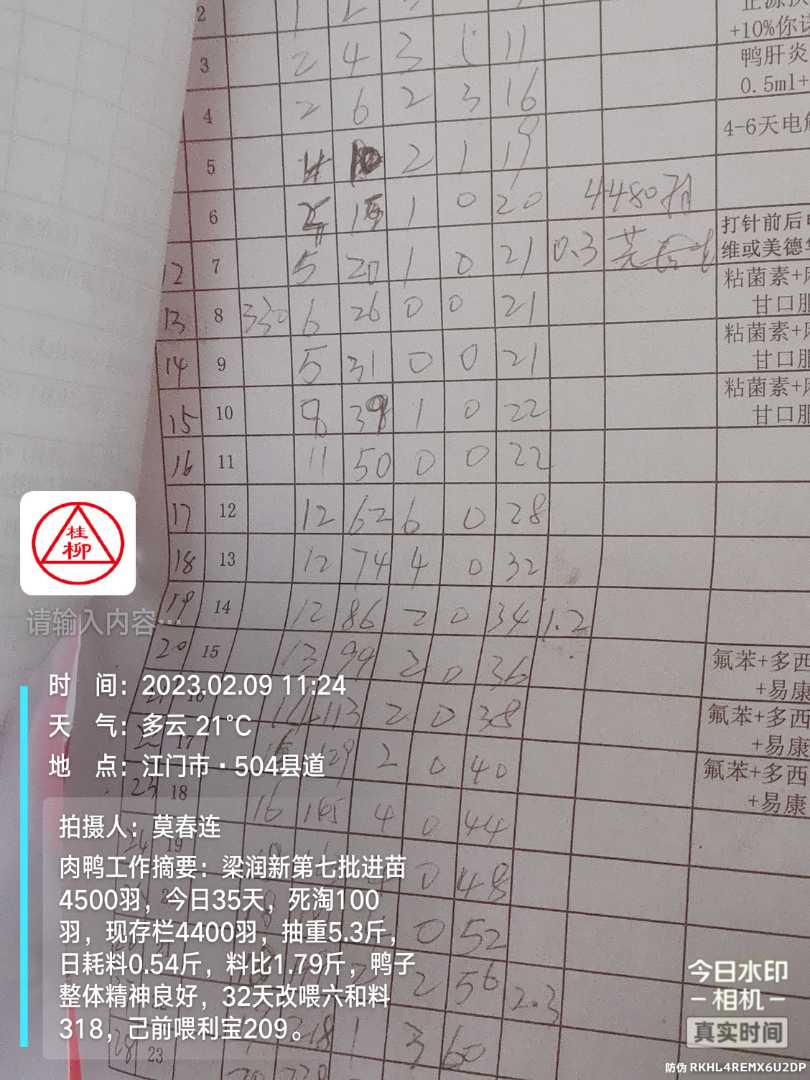 2 1
正源扶
+10%你
3 2 4 3 11
鸭肝炎
4 2 6 2 3 16
0.5ml+
4-6天电解
5 2 1 19
6 1 0 20 4480羽
打针前后电
维或美德
12 7 5 20 1 0 21 0.3
粘菌素+
甘口肥
13 8 330 6 26 0 0 21
粘菌素+
甘口肥
14 9 5 31 0 0 21
粘菌素+
甘口肥
15 10 8 39 1 0 22
16 11 11 50 0 0 22
17 12 12 62 6 0 28
18 13 12 74 4 0 32
19 14 12 86 2 0 34 1.2
20 15 13 99 2 0 36
氟苯+多西
+易康
16 14 113 2 0 38
氟苯+多西
+易康
17 129 2 0 40
氟苯+多西
+易康
23 18 16 145 4 0 44
24 19 0 48
0 52
2 56 2.3
28 23 1 3 60
桂
柳
请输入内容…
时 间：2023.02.09 11:24
天 气：多云 21°C
地 点：江门市·504县道
拍摄人：莫春连
肉鸭工作摘要：梁润新第七批进苗
4500羽，今日35天，死淘100
羽，现存栏4400羽，抽重5.3斤，
日耗料0.54斤，料比1.79斤，鸭子
整体精神良好，32天改喂六和料
318，己前喂利宝209。
今日水印
相机
真实时间
防伪 RKHL4REMX6U2DP